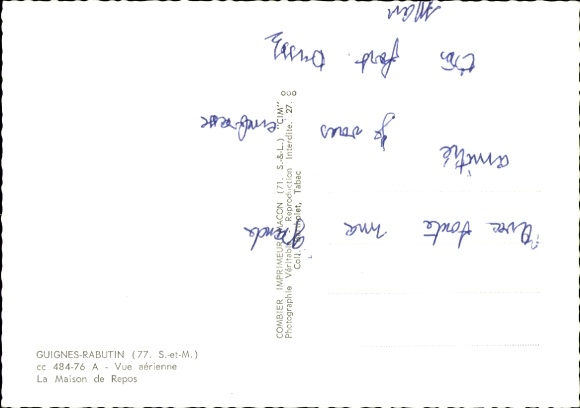 GUIGNES-RABUTIN (77. S.-et-M.)
cc 484-76 A - Vue aérienne
La Maison de Repos
COMBIER IMPRIMEUR MACON (71. S.-&-L.) "CIM"
Photographie Véritable Reproduction Interdite. 27.
Coll. Tabac
Avec toute ma grande
amitié
Je vous embrasse
très fort